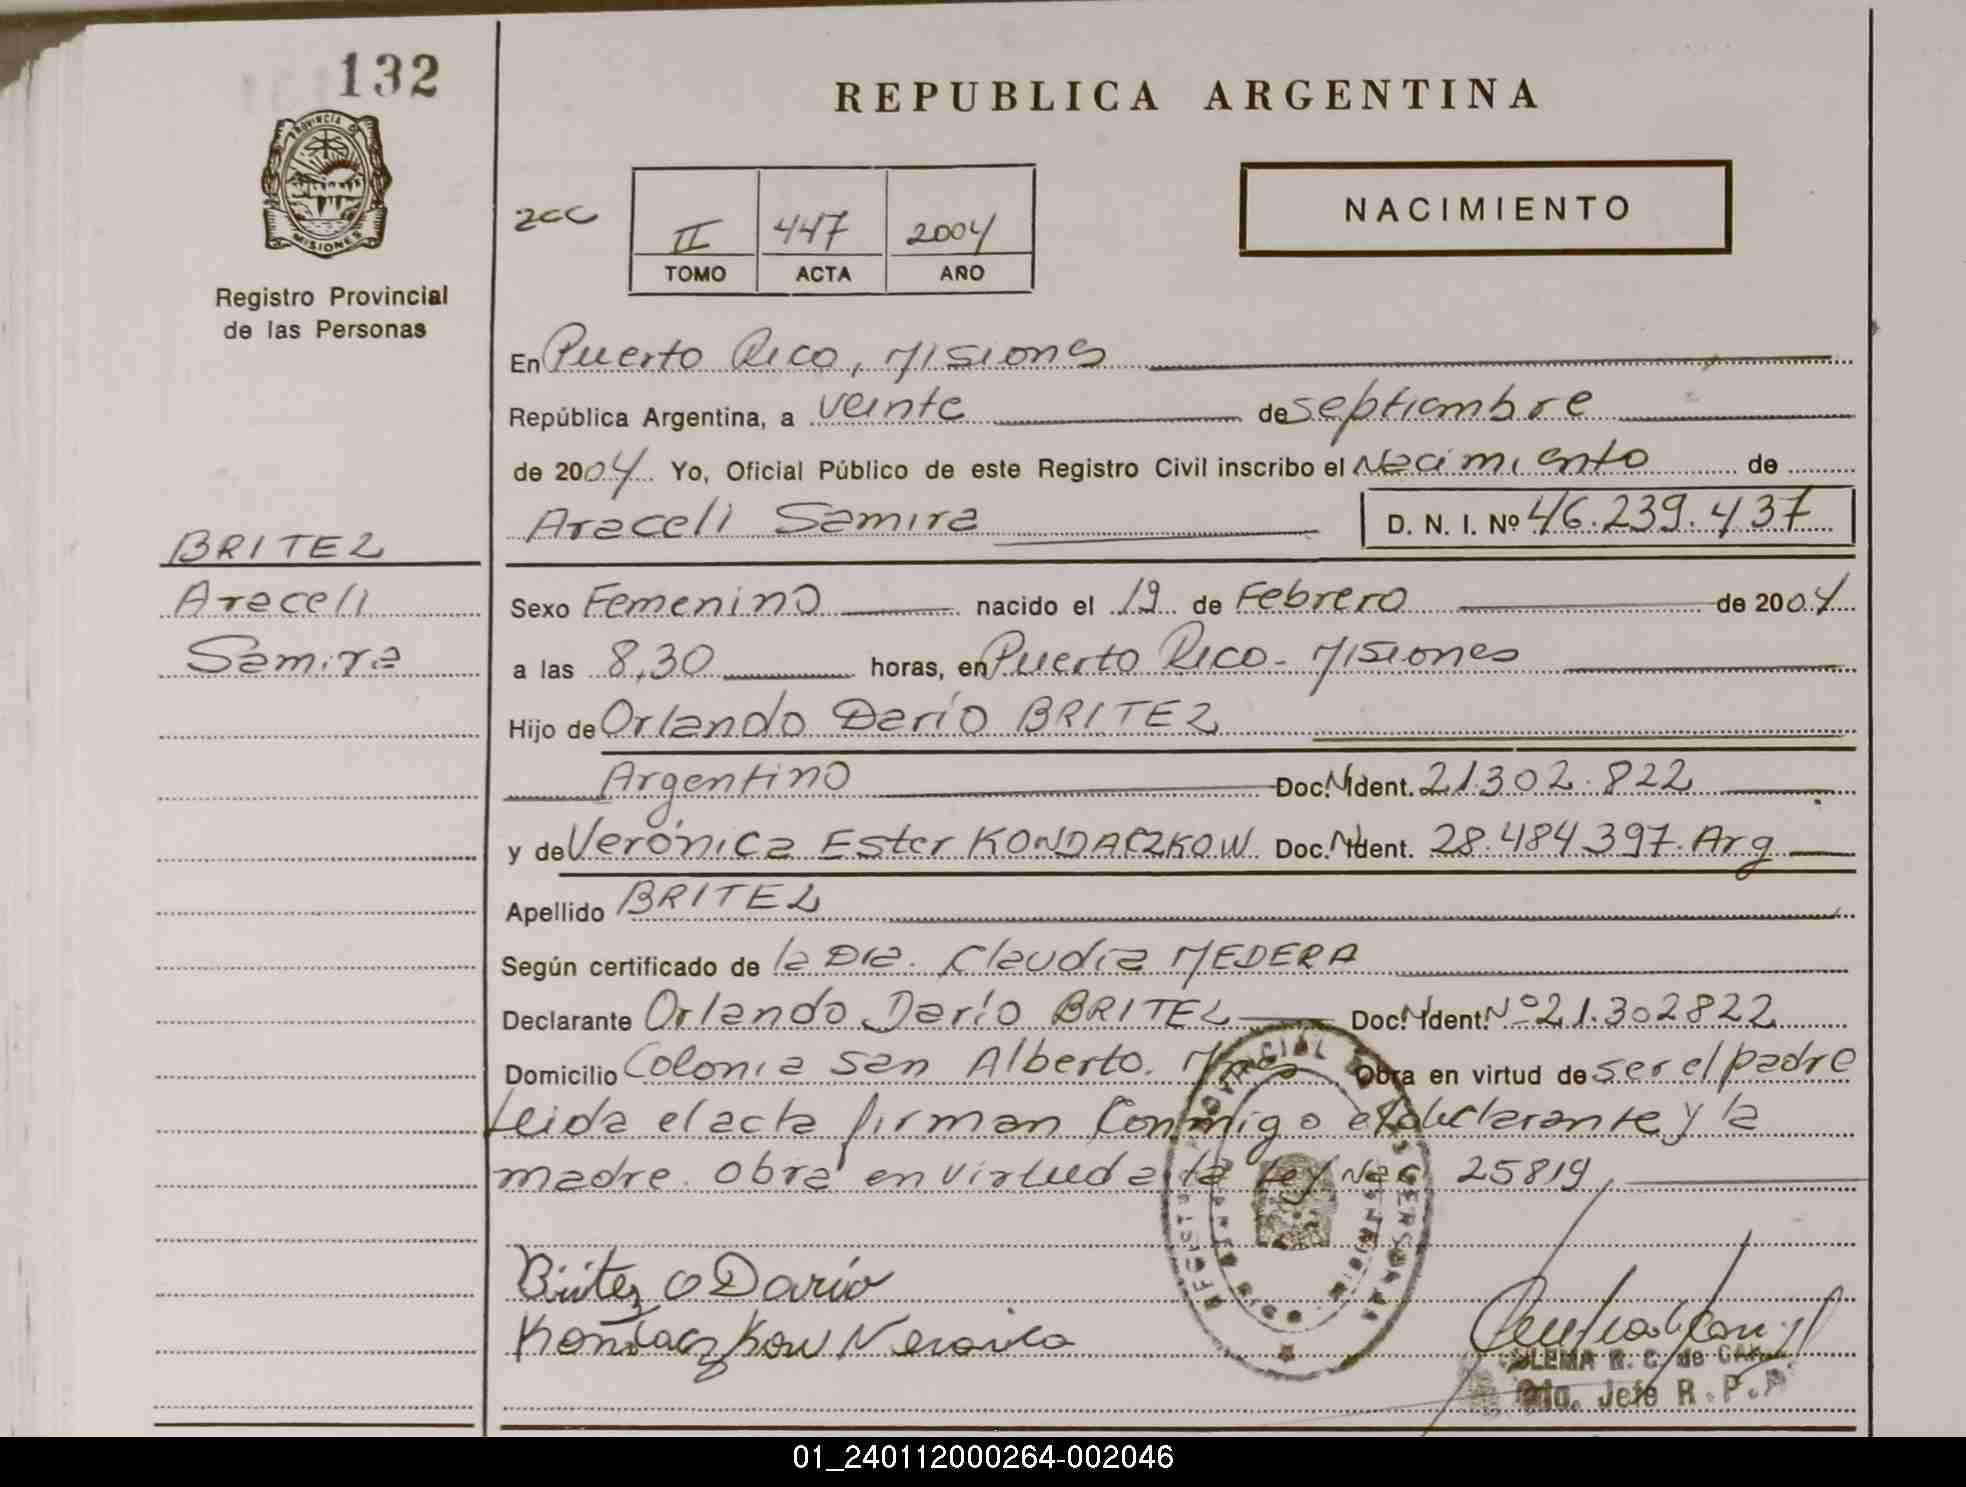 132
REPUBLICA ARGENTINA
PROVINCIA DE MISIONES
Registro Provincial
de las Personas
2CC
II 447 2004
TOMO ACTA AÑO
NACIMIENTO
En Puerto Rico, Misiones
República Argentina, a veinte de septiembre
de 2004 Yo, Oficial Público de este Registro Civil inscribo el Nacimiento de
Araceli Samira D. N. I. Nº 46.239.437
BRITEZ
Araceli
Samira
Sexo Femenino nacido el 19 de Febrero de 2004
a las 8,30 horas, en Puerto Rico - Misiones
Hijo de Orlando Darío BRITEZ
Argentino Doc. N Ident. 21.302.822
y de Verónica Ester KONDACZKOW Doc. N Ident. 28.484.397. Arg
Apellido BRITEZ
Según certificado de la Dra. Claudia MEDERA
Declarante Orlando Darío BRITEZ Doc. N Ident. Nº 21.302822
Domicilio Colonia San Alberto. Mnes Obra en virtud de ser el padre
Leida el acta firman Conmigo el declarante y la
madre. Obra en virtud a la Ley Nac 25819
Britez O Darío
Kondaczkow Veronica
LEMA R. C. de
Jefe R. P. P.
01_240112000264-002046